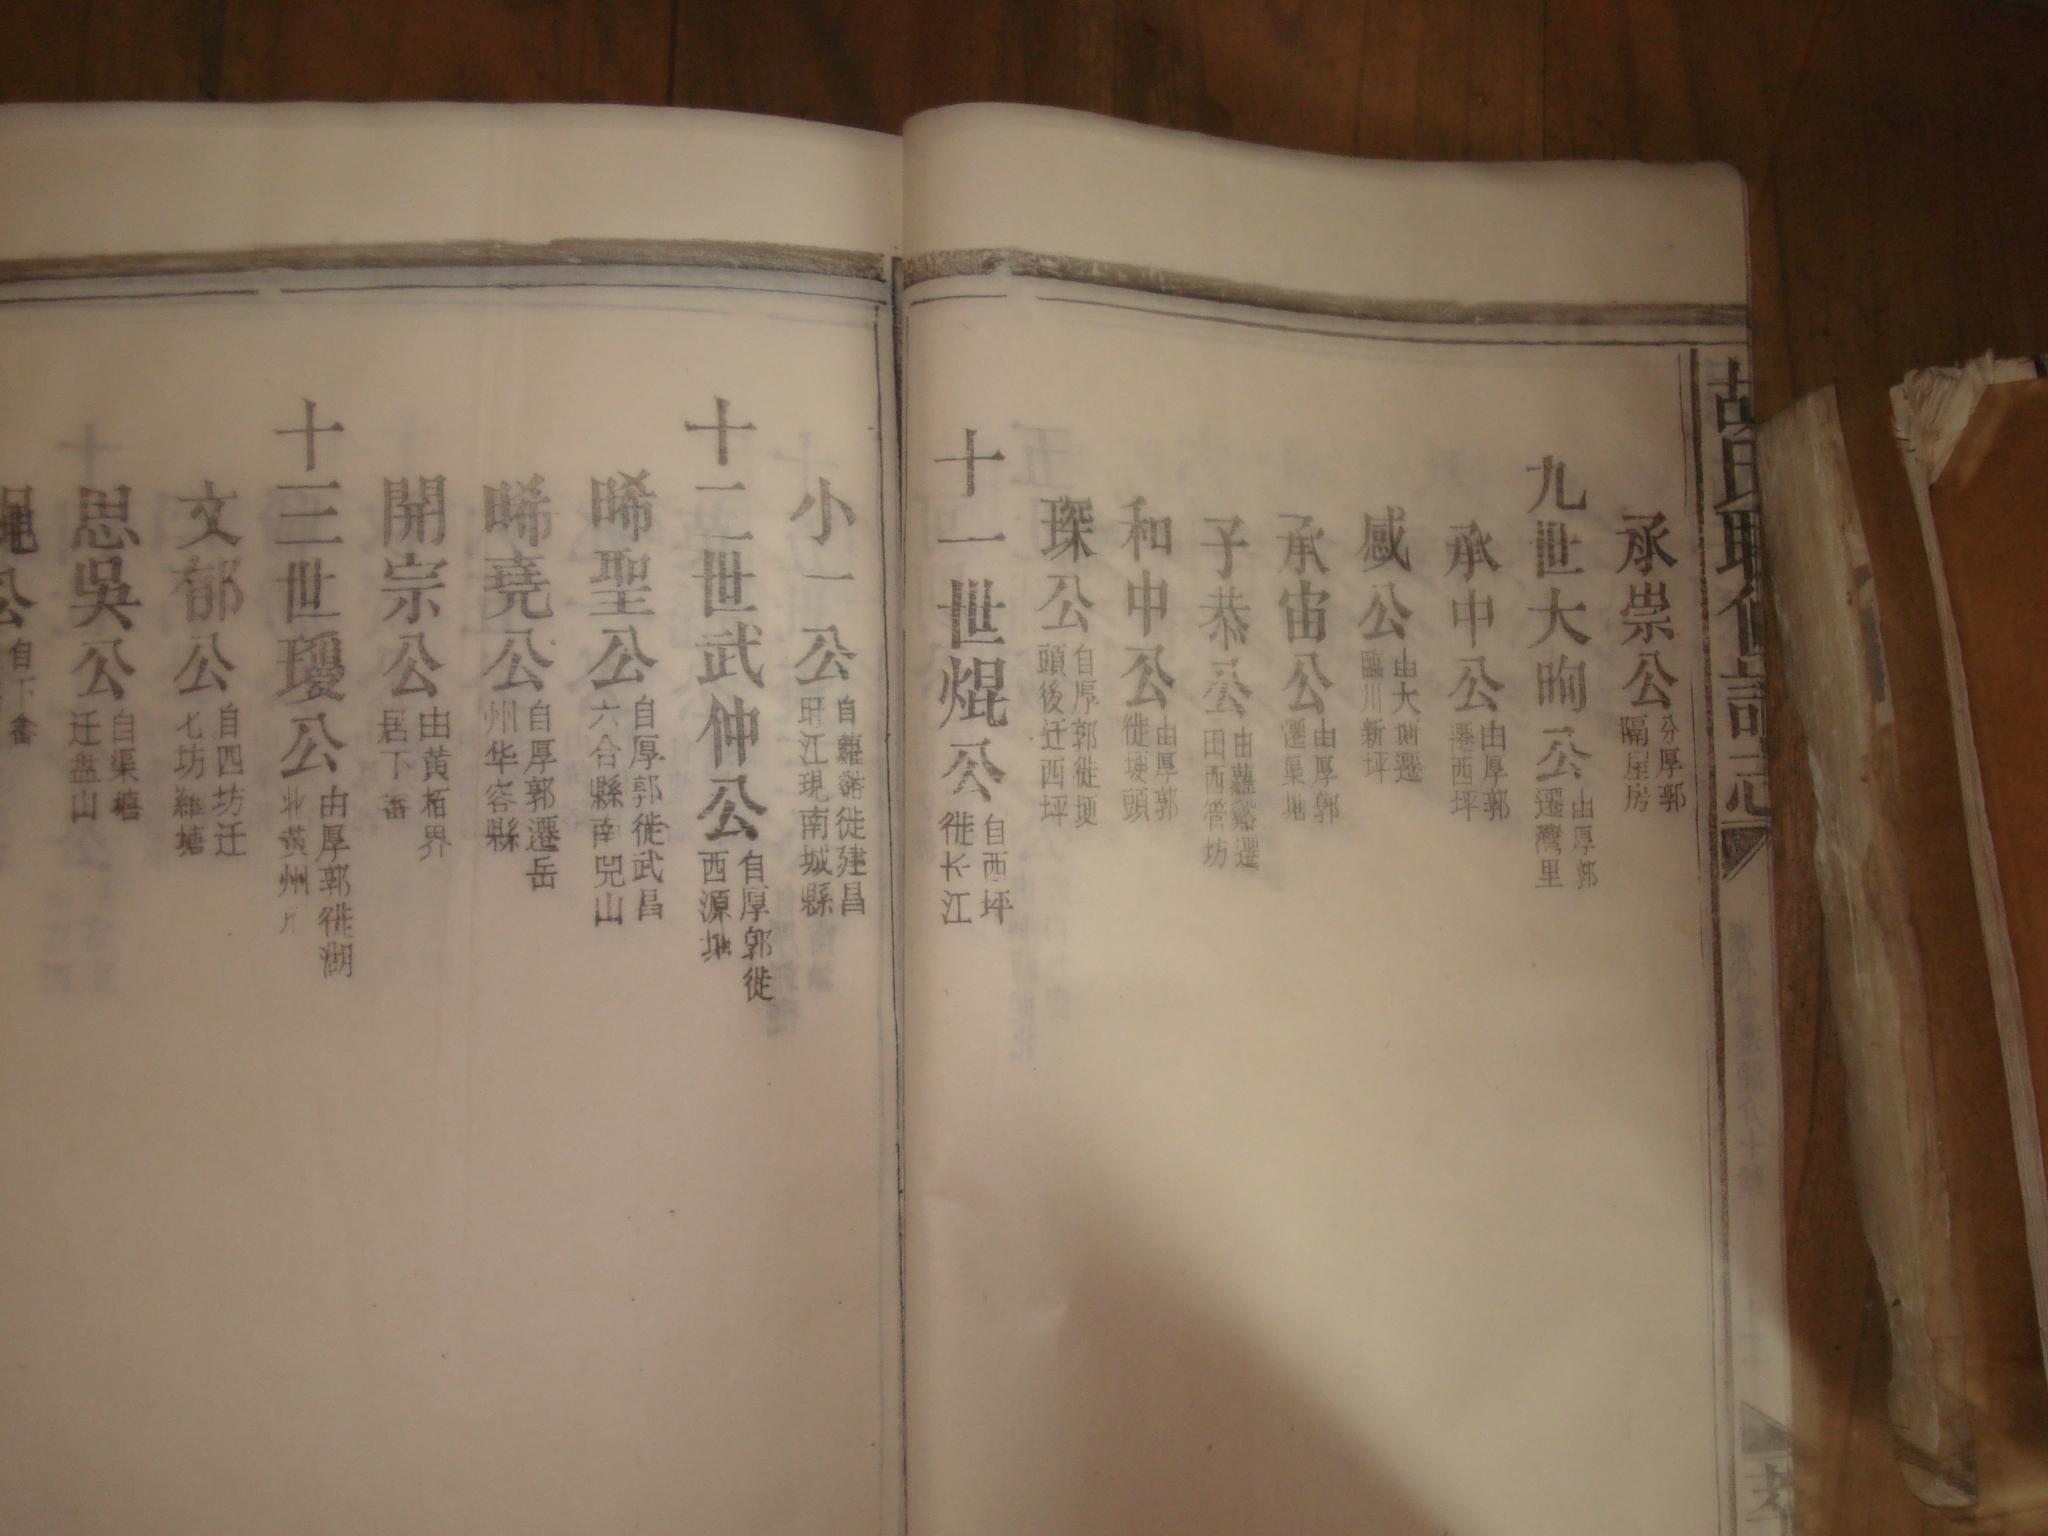 胡氏聯修譜志
承崇公 分厚郭隔屋房
九世大晌公 由厚郭遷灣里
承中公 由厚郭遷西坪
感公 由大 遷臨川新坪
承宙公 由厚郭遷渠地
子恭公 由蘿谿遷田西管坊
和中公 由厚郭徙埂頭
琛公 自厚郭徙埂頭後迁西坪
十一世焜公 自西坪徙长江
小一公 自蘿谿徙建昌 江現南城縣
十二世武仲公 自厚郭徙西源地
晞聖公 自厚郭徙武昌六合縣南兕山
晞堯公 自厚郭遷岳州华容縣
開宗公 由黄栢界居下畬
十三世瓊公 由厚郭徙湖北黄州
文郁公 自四坊迁七坊雒塘
思吳公 自渠塘迁盘山
公 自下畬